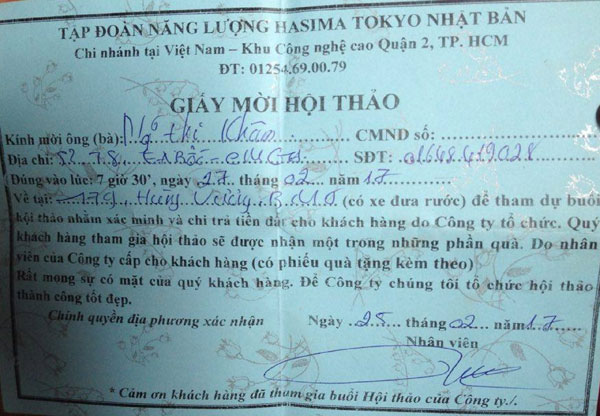 TẬP ĐOÀN NĂNG LƯỢNG HASIMA TOKYO NHẬT BẢN
Chi nhánh tại Việt Nam – Khu Công nghệ cao Quận 2, TP. HCM
ĐT: 01254.69.00.79
GIẤY MỜI HỘI THẢO
Kính mời ông (bà): Ngô thị Khâm CMND số:
Địa chỉ: SĐT: 01648419028
Đúng vào lúc: 7 giờ 30', ngày 27 tháng 02 năm 17
Về tại: 179 Hùng Vương (có xe đưa rước) để tham dự buổi
hội thảo nhằm xác minh và chi trả tiền đất cho khách hàng do Công ty tổ chức. Quý
khách hàng tham gia hội thảo sẽ được nhận một trong những phần quà. Do nhân
viên của Công ty cấp cho khách hàng (có phiếu quà tặng kèm theo)
Rất mong sự có mặt của quý khách hàng. Để Công ty chúng tôi tổ chức hội thảo
thành công tốt đẹp.
Chính quyền địa phương xác nhận Ngày 25 tháng 02 năm 17
Nhân viên
* Cảm ơn khách hàng đã tham gia buổi Hội thảo của Công ty./.